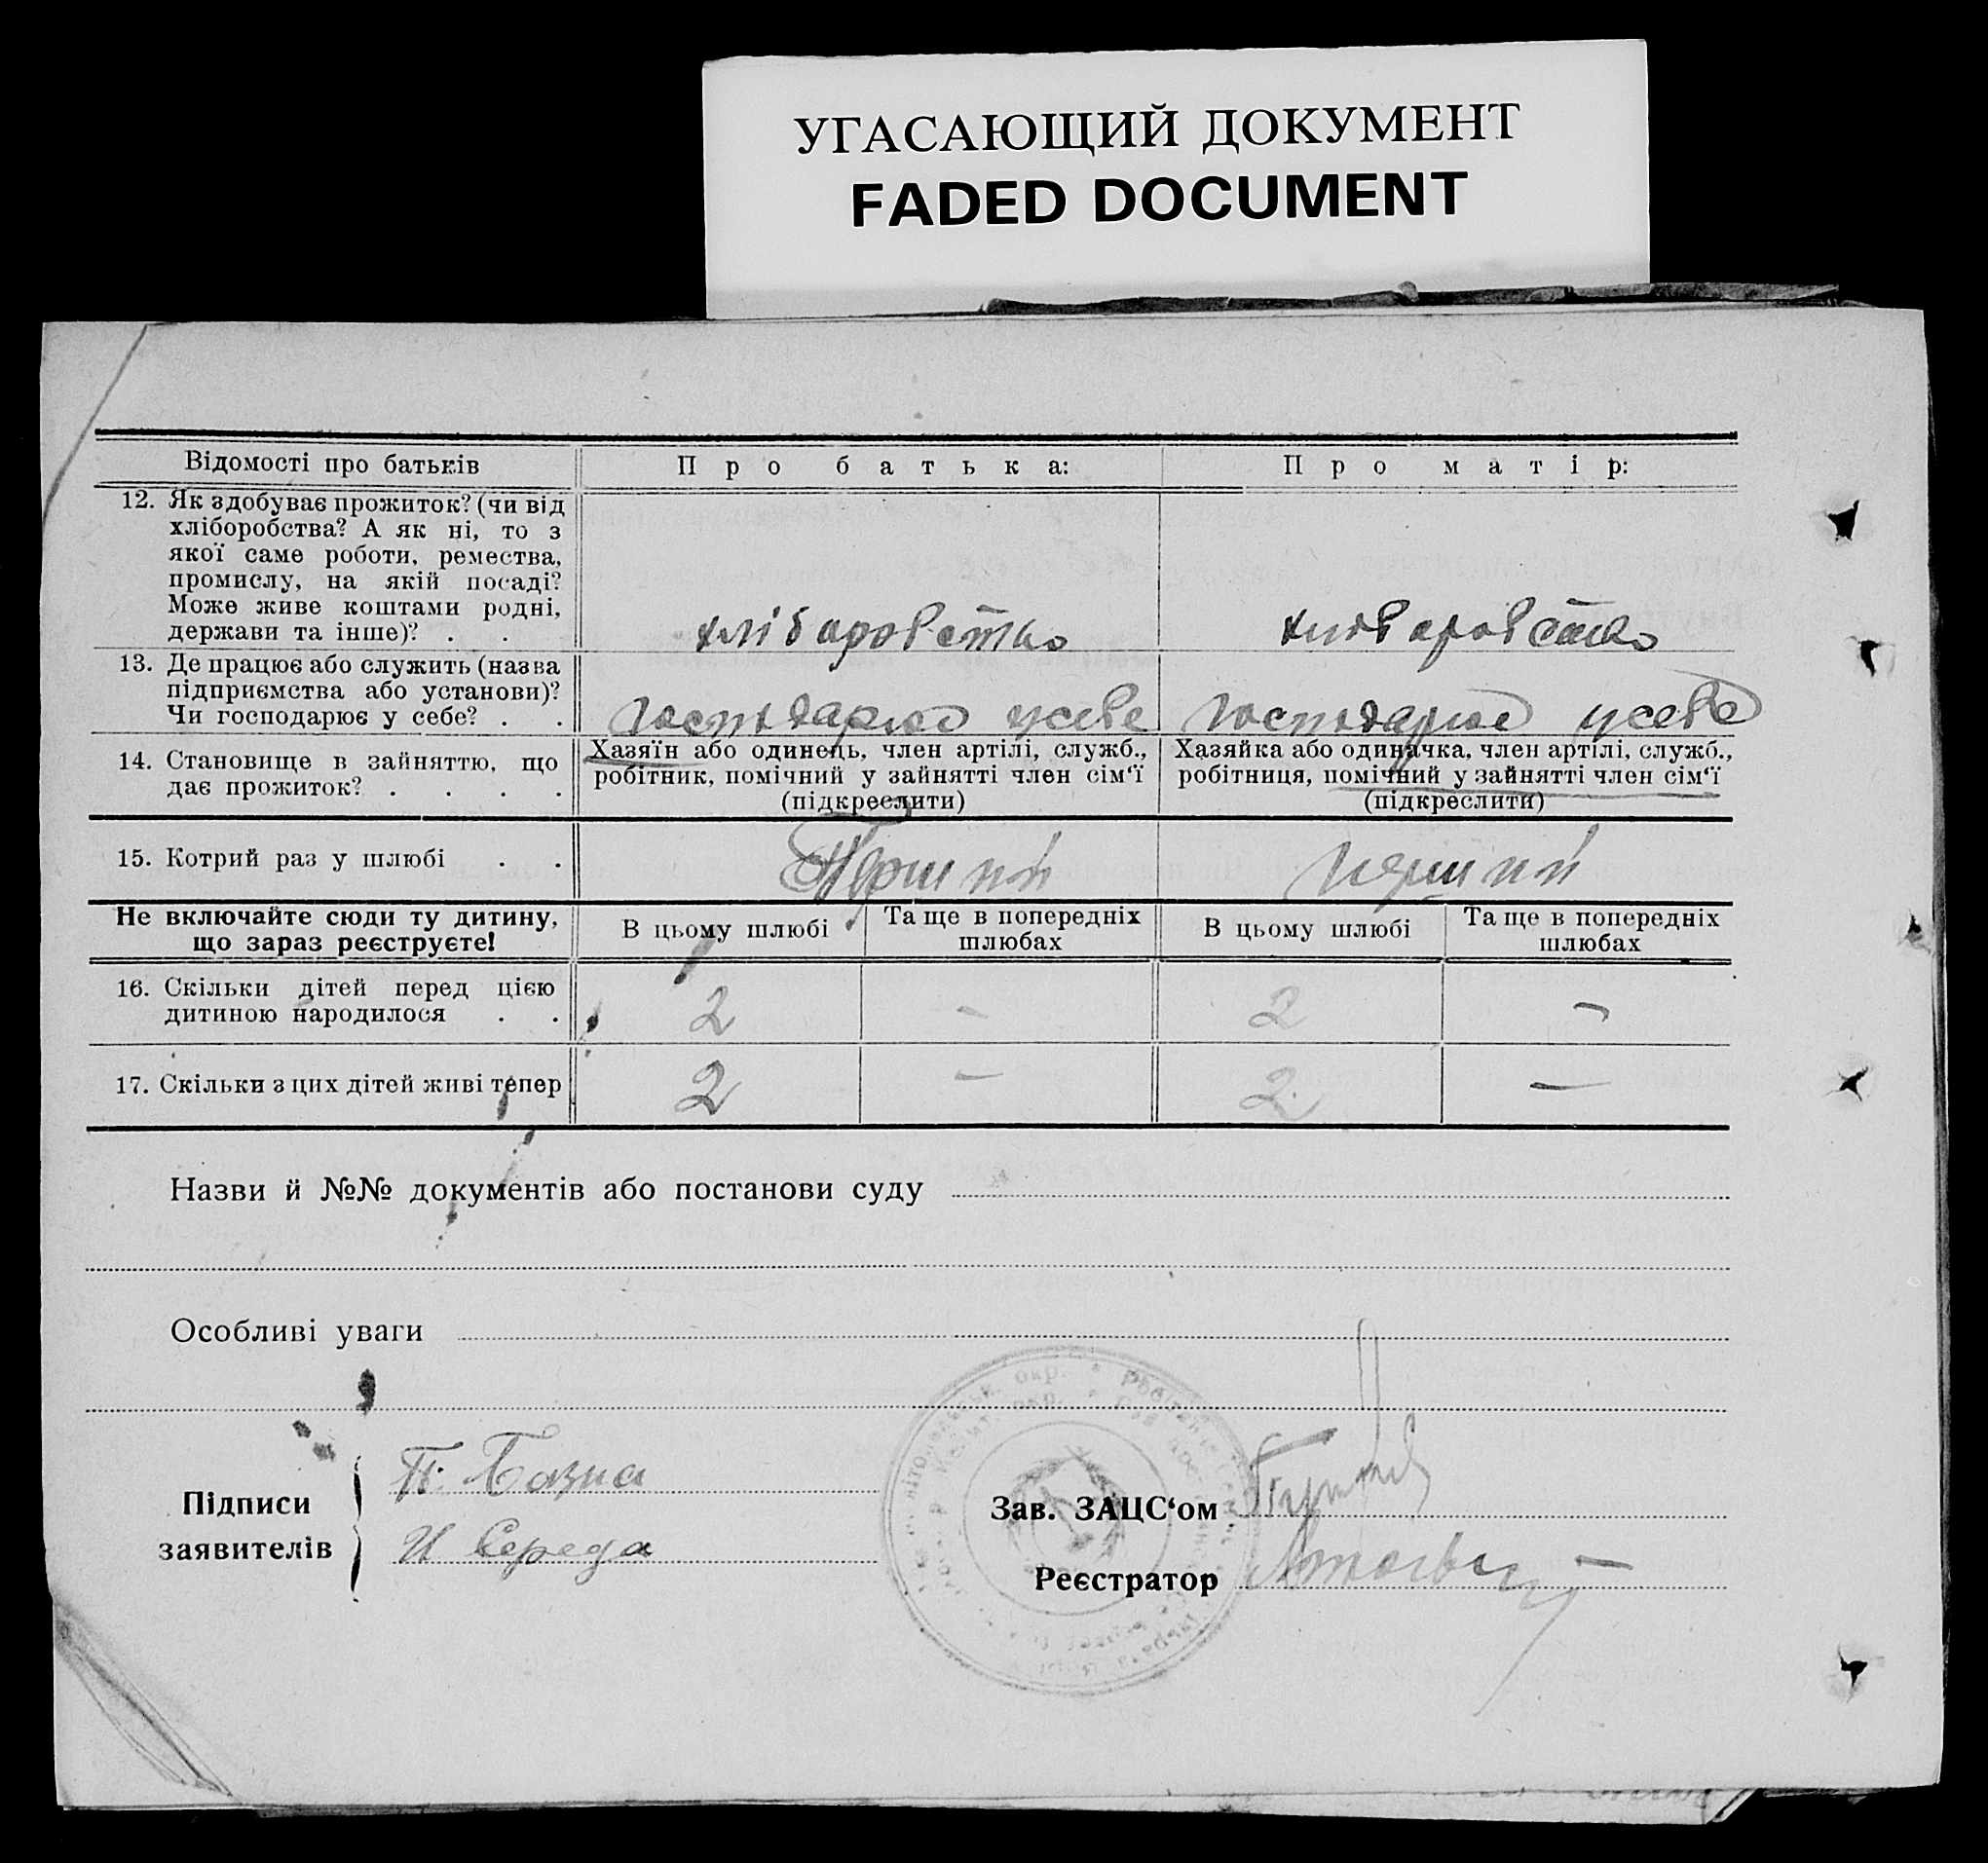 УГАСАЮЩИЙ ДОКУМЕНТ
FADED DOCUMENT
Відомості про батьків
Про батька:
Про матір:
12. Як здобуває прожиток? (чи від
хліборобства? А як ні, то з
якої саме роботи, ремества,
промислу, на якій посаді?
Може живе коштами родні,
держави та інше)? . .
хліборобство
хліборобство
13. Де працює або служить (назва
підприємства або установи)?
Чи господарює у себе? . .
господарює усебе
господарює усебе
14. Становище в зайняттю, що
дає прожиток? . . . .
Хазяїн або одинець, член артілі, служб.,
робітник, помічний у зайнятті член сім‘ї
(підкреслити)
Хазяйка або одиначка, член артілі, служб.,
робітниця, помічний у зайнятті член сім‘ї
(підкреслити)
15. Котрий раз у шлюбі . .
Перший
перший
Не включайте сюди ту дитину,
що зараз реєструєте!
В цьому шлюбі
Та ще в попередніх
шлюбах
В цьому шлюбі
Та ще в попередніх
шлюбах
16. Скільки дітей перед цією
дитиною народилося . .
2
-
2
-
17. Скільки з цих дітей живі тепер
2
-
2
-
Назви й №№ документів або постанови суду
Особливі уваги
Підписи
заявителів
П. Базна
И Середа
Зав. ЗАЦС‘ом
Реєстратор